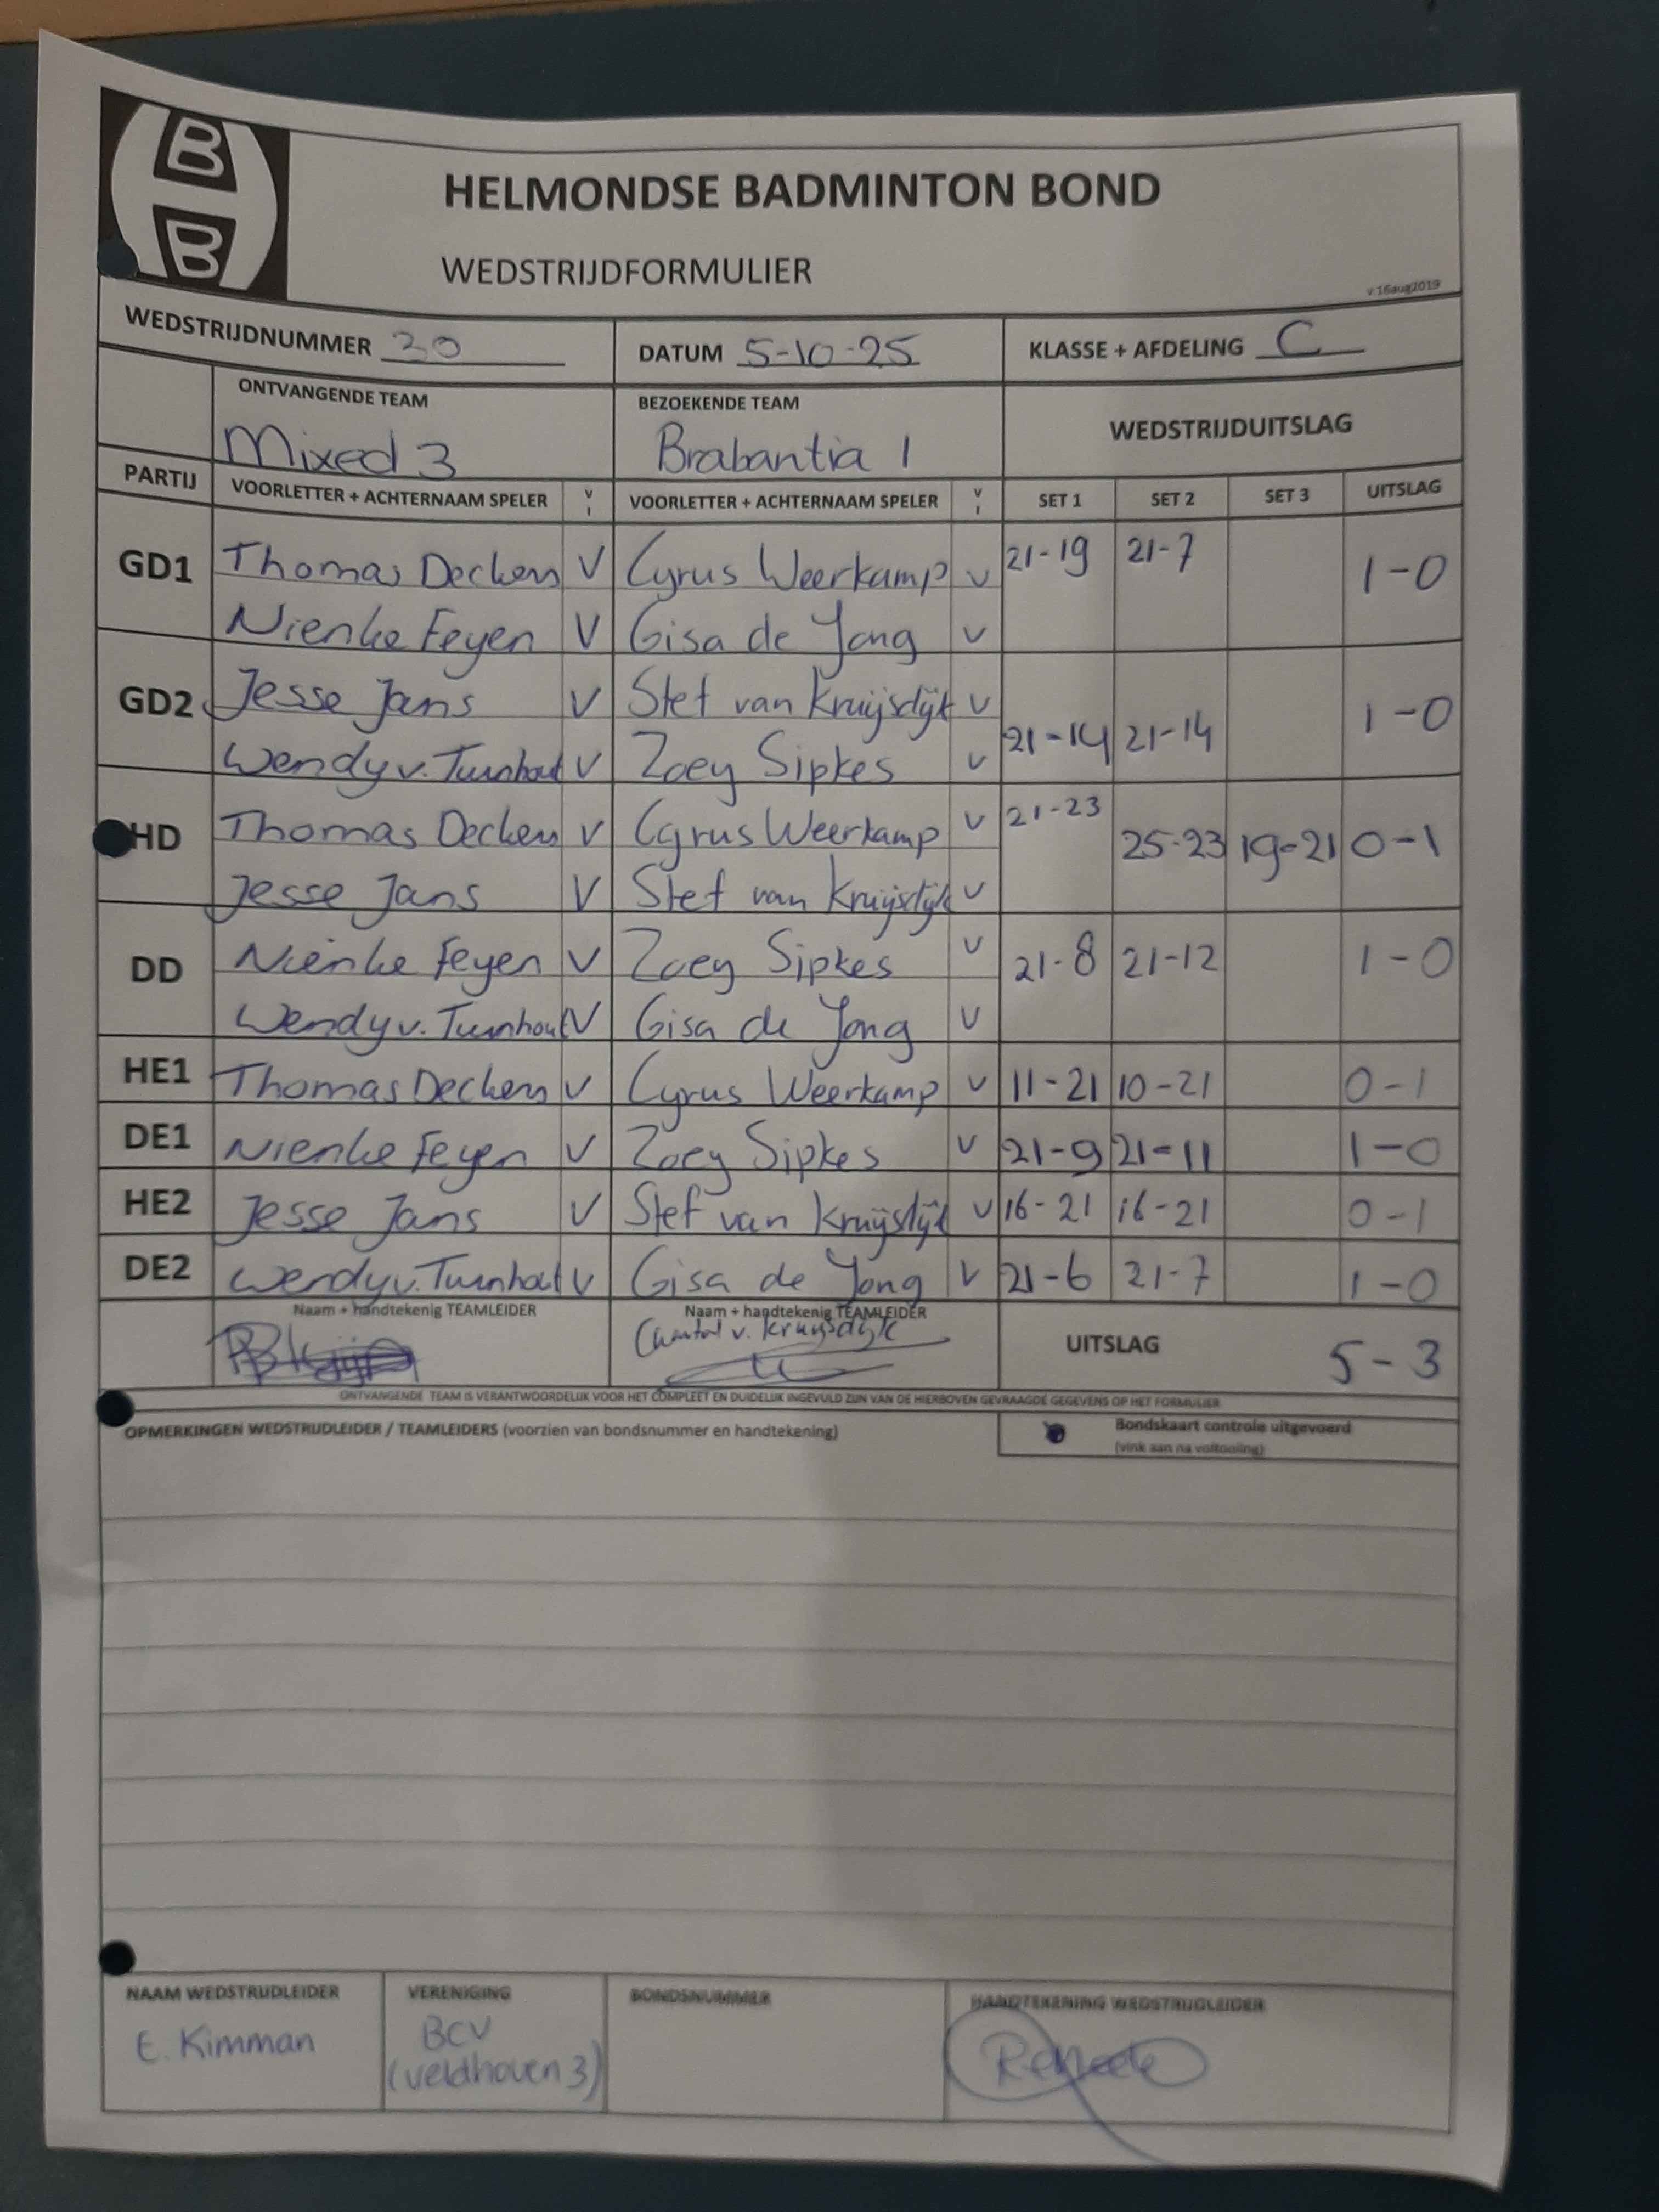 B
B
HELMONDSE BADMINTON BOND
WEDSTRIJDFORMULIER
v.16aug2019
WEDSTRIJDNUMMER 30 DATUM 5-10-25 KLASSE + AFDELING C
ONTVANGENDE TEAM BEZOEKENDE TEAM WEDSTRIJDUITSLAG
Mixed 3 Brabantia 1
PARTIJ VOORLETTER + ACHTERNAAM SPELER V I VOORLETTER + ACHTERNAAM SPELER V I SET 1 SET 2 SET 3 UITSLAG
GD1 Thomas Deckers V Cyrus Weerkamp V 21-19 21-7 1-0
Nienke Feyen V Gisa de Jong V
GD2 Jesse Jans V Stef van Kruijsdijk V 21-14 21-14 1-0
Wendy v. Turnhout V Zoey Sipkes V
HD Thomas Deckers V Cyrus Weerkamp V 21-23 25-23 19-21 0-1
Jesse Jans V Stef van Kruijsdijk V
DD Nienke Feyen V Zoey Sipkes V 21-8 21-12 1-0
Wendy v. Turnhout V Gisa de Jong V
HE1 Thomas Deckers V Cyrus Weerkamp V 11-21 10-21 0-1
DE1 Nienke Feyen V Zoey Sipkes V 21-9 21-11 1-0
HE2 Jesse Jans V Stef van Kruijsdijk V 16-21 16-21 0-1
DE2 Wendy v. Turnhout V Gisa de Jong V 21-6 21-7 1-0
Naam + handtekenig TEAMLEIDER Naam + handtekenig TEAMLEIDER UITSLAG 5-3
Chantal v. Kruijsdijk
ONTVANGENDE TEAM IS VERANTWOORDELIJK VOOR HET COMPLEET EN DUIDELIJK INGEVULD ZIJN VAN DE HIERBOVEN GEVRAAGDE GEGEVENS OP HET FORMULIER
OPMERKINGEN WEDSTRIJDLEIDER / TEAMLEIDERS (voorzien van bondsnummer en handtekening) Bondskaart controle uitgevoerd
(vink aan na voltooiing)
NAAM WEDSTRIJDLEIDER VERENIGING BONDSNUMMER HANDTEKENING WEDSTRIJDLEIDER
E. Kimman BCV
(Veldhoven 3)